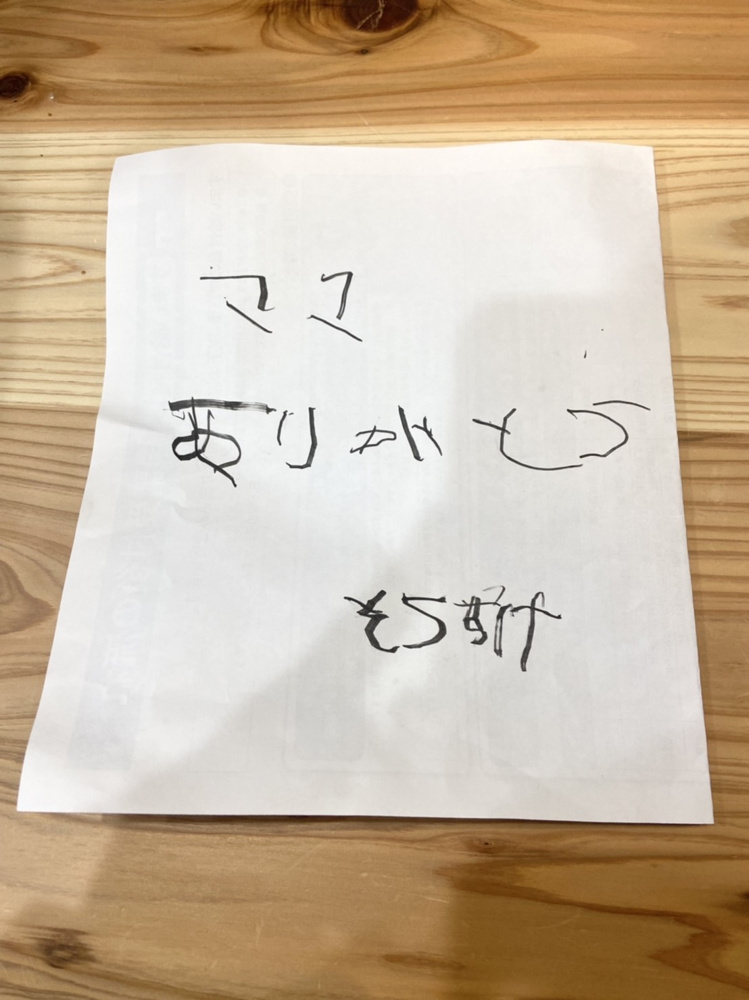 ママ
ありがとう
そうすけ